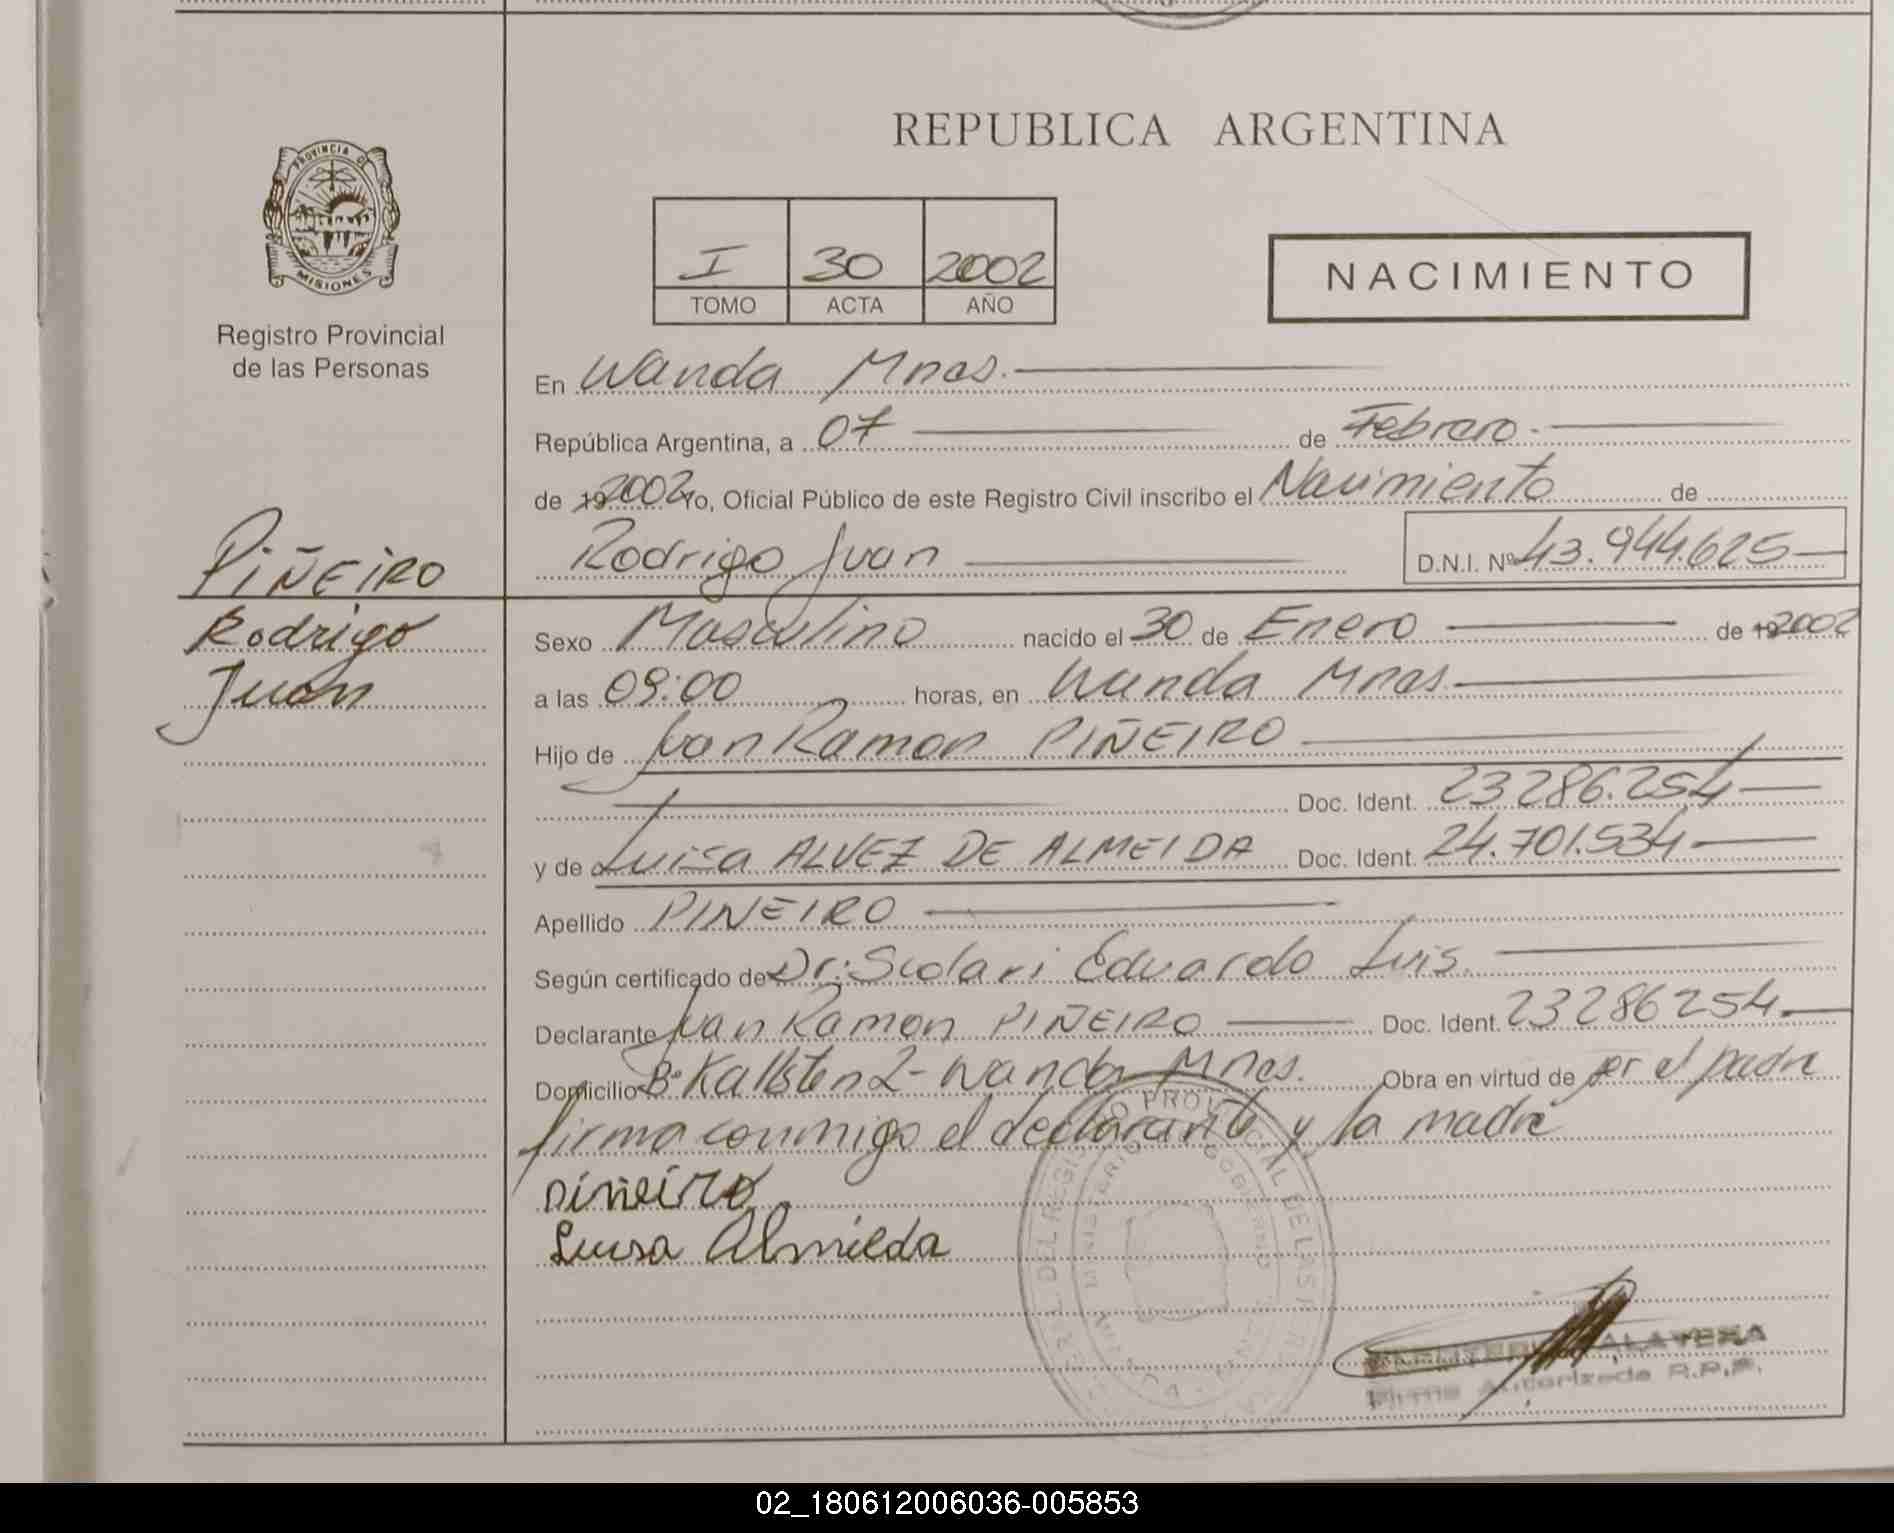 REPUBLICA ARGENTINA
PROVINCIA DE
MISIONES
Registro Provincial
de las Personas
I 30 2002
TOMO ACTA AÑO
NACIMIENTO
En Wanda Mnes.
República Argentina, a 07 de Febrero
de 19 2002 Yo, Oficial Público de este Registro Civil inscribo el Nacimiento de
Rodrigo Juan D.N.I. Nº 43.944.625
PIÑEIRO
Rodrigo
Juan
Sexo Masculino nacido el 30 de Enero de 19 2002
a las 09:00 horas, en Wanda Mnes.
Hijo de Juan Ramon PIÑEIRO
Doc. Ident. 23286.254
y de Luisa ALVEZ DE ALMEIDA Doc. Ident. 24.701.534
Apellido PIÑEIRO
Según certificado de Dr: Scolari Eduardo Luis.
Declarante Juan Ramon PIÑEIRO Doc. Ident. 23286254
Domicilio Bº Kallsten 2 - Wanda Mnes. Obra en virtud de ser el padre
firma conmigo el declarante y la madre
Piñeiro
Luisa Almieda
ALAVERA
Firma Autorizada R.P.P.
02_180612006036-005853